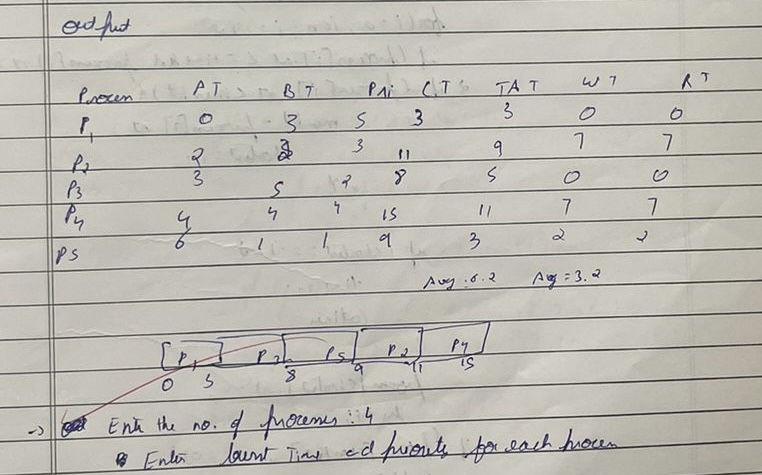 output
Process AT BT Pri C.T TAT WT RT
P1 0 3 5 3 3 0 0
P2 2 2 3 11 9 7 7
P3 3 5 2 8 5 0 0
P4 4 4 4 15 11 7 7
P5 6 1 1 9 3 2 2
Avg : 6.2 Avg = 3.2
P1 P3 P5 P2 P4
0 3 8 9 11 15
→ Enter the no. of processes : 4
Enter burst Time and priority for each process